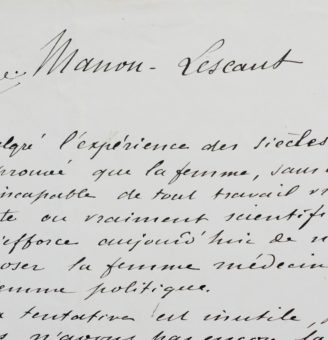 Manon-Lescaut
lgré l'expérience des siècles
prouvé que la femme, sans
incapable de tout travail vr
te ou vraiment scientifi
'efforce aujourd'hui de n
oser la femme médecin
emme politique.
tentative est inutile,
n'avons pas encore la